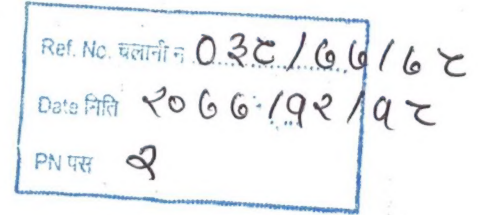 Ref. No. चलानी न ०३८/७७/७८
Date मिति २०७७/१२/१८
PN पस २